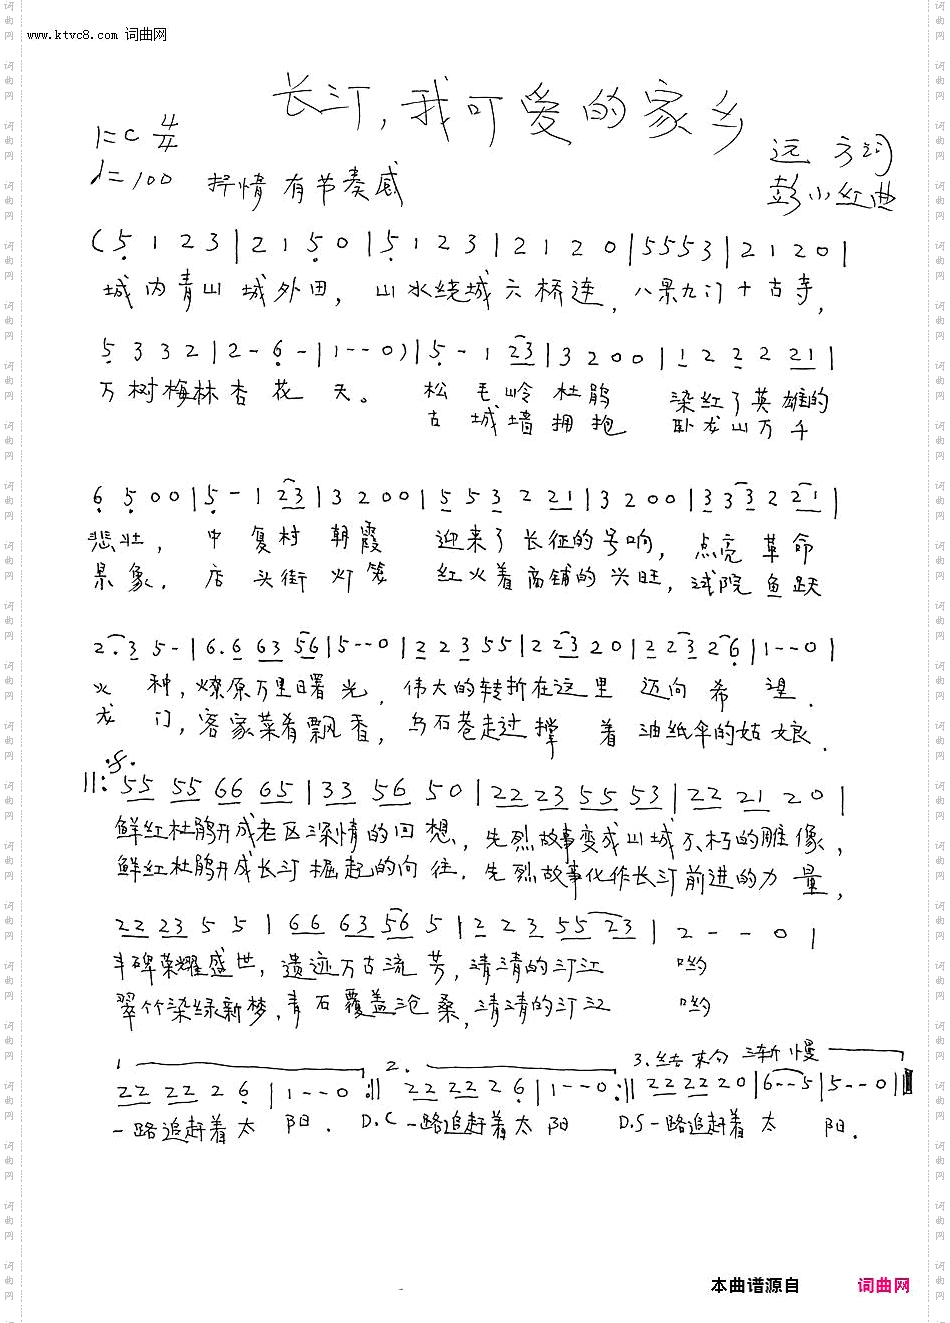 www.ktvc8.com 词曲网
长汀，我可爱的家乡
1=C 4/4
♩=100 抒情 有节奏感
远方词
彭小红曲
(5 1 2 3 | 2 1 5 0 | 5 1 2 3 | 2 1 2 0 | 5 5 5 3 | 2 1 2 0 |
城内青山城外田，山水绕城六桥连，八景九门十古寺，
5 3 3 2 | 2 - 6 - | 1 - - 0) | 5 - 1 23 | 3 2 0 0 | 1 2 2 2 21 |
万树梅林杏花天。 松毛岭杜鹃 染红了英雄的
古城墙拥抱 卧龙山万千
6 5 0 0 | 5 - 1 23 | 3 2 0 0 | 5 5 3 2 21 | 3 2 0 0 | 3 3 3 2 21 |
悲壮， 中复村朝霞 迎来了长征的号响，点亮革命
景象。店头街灯笼 红火着商铺的兴旺，试院鱼跃
2. 3 5 - | 6. 6 63 56 | 5 - - 0 | 2 2 3 55 | 2 23 2 0 | 2 23 26 | 1 - - 0 |
火种，燎原万里曙光，伟大的转折在这里 迈向希望。
龙门，客家菜肴飘香，乌石巷走过撑着油纸伞的姑娘。
||: 55 55 66 65 | 33 56 50 | 22 23 55 53 | 22 21 20 |
鲜红杜鹃开成老区深情的回想，先烈故事变成山城不朽的雕像，
鲜红杜鹃开成长汀崛起的向往。先烈故事化作长汀前进的力量，
22 23 5 5 | 66 63 56 5 | 2 2 3 55 23 | 2 - - 0 |
丰碑荣耀盛世，遗迹万古流芳，清清的汀江 哟
翠竹染绿新梦，青石覆盖沧桑，清清的汀江 哟
1. 2. 3.结束句 渐慢
22 22 2 6 | 1 - - 0 :|| 22 22 2 6 | 1 - - 0 :|| 22 22 2 0 | 6 - - 5 | 5 - - 0 ||
一路追赶着太阳. D.C 一路追赶着太阳 D.S 一路追赶着太阳.
本曲谱源自 词曲网